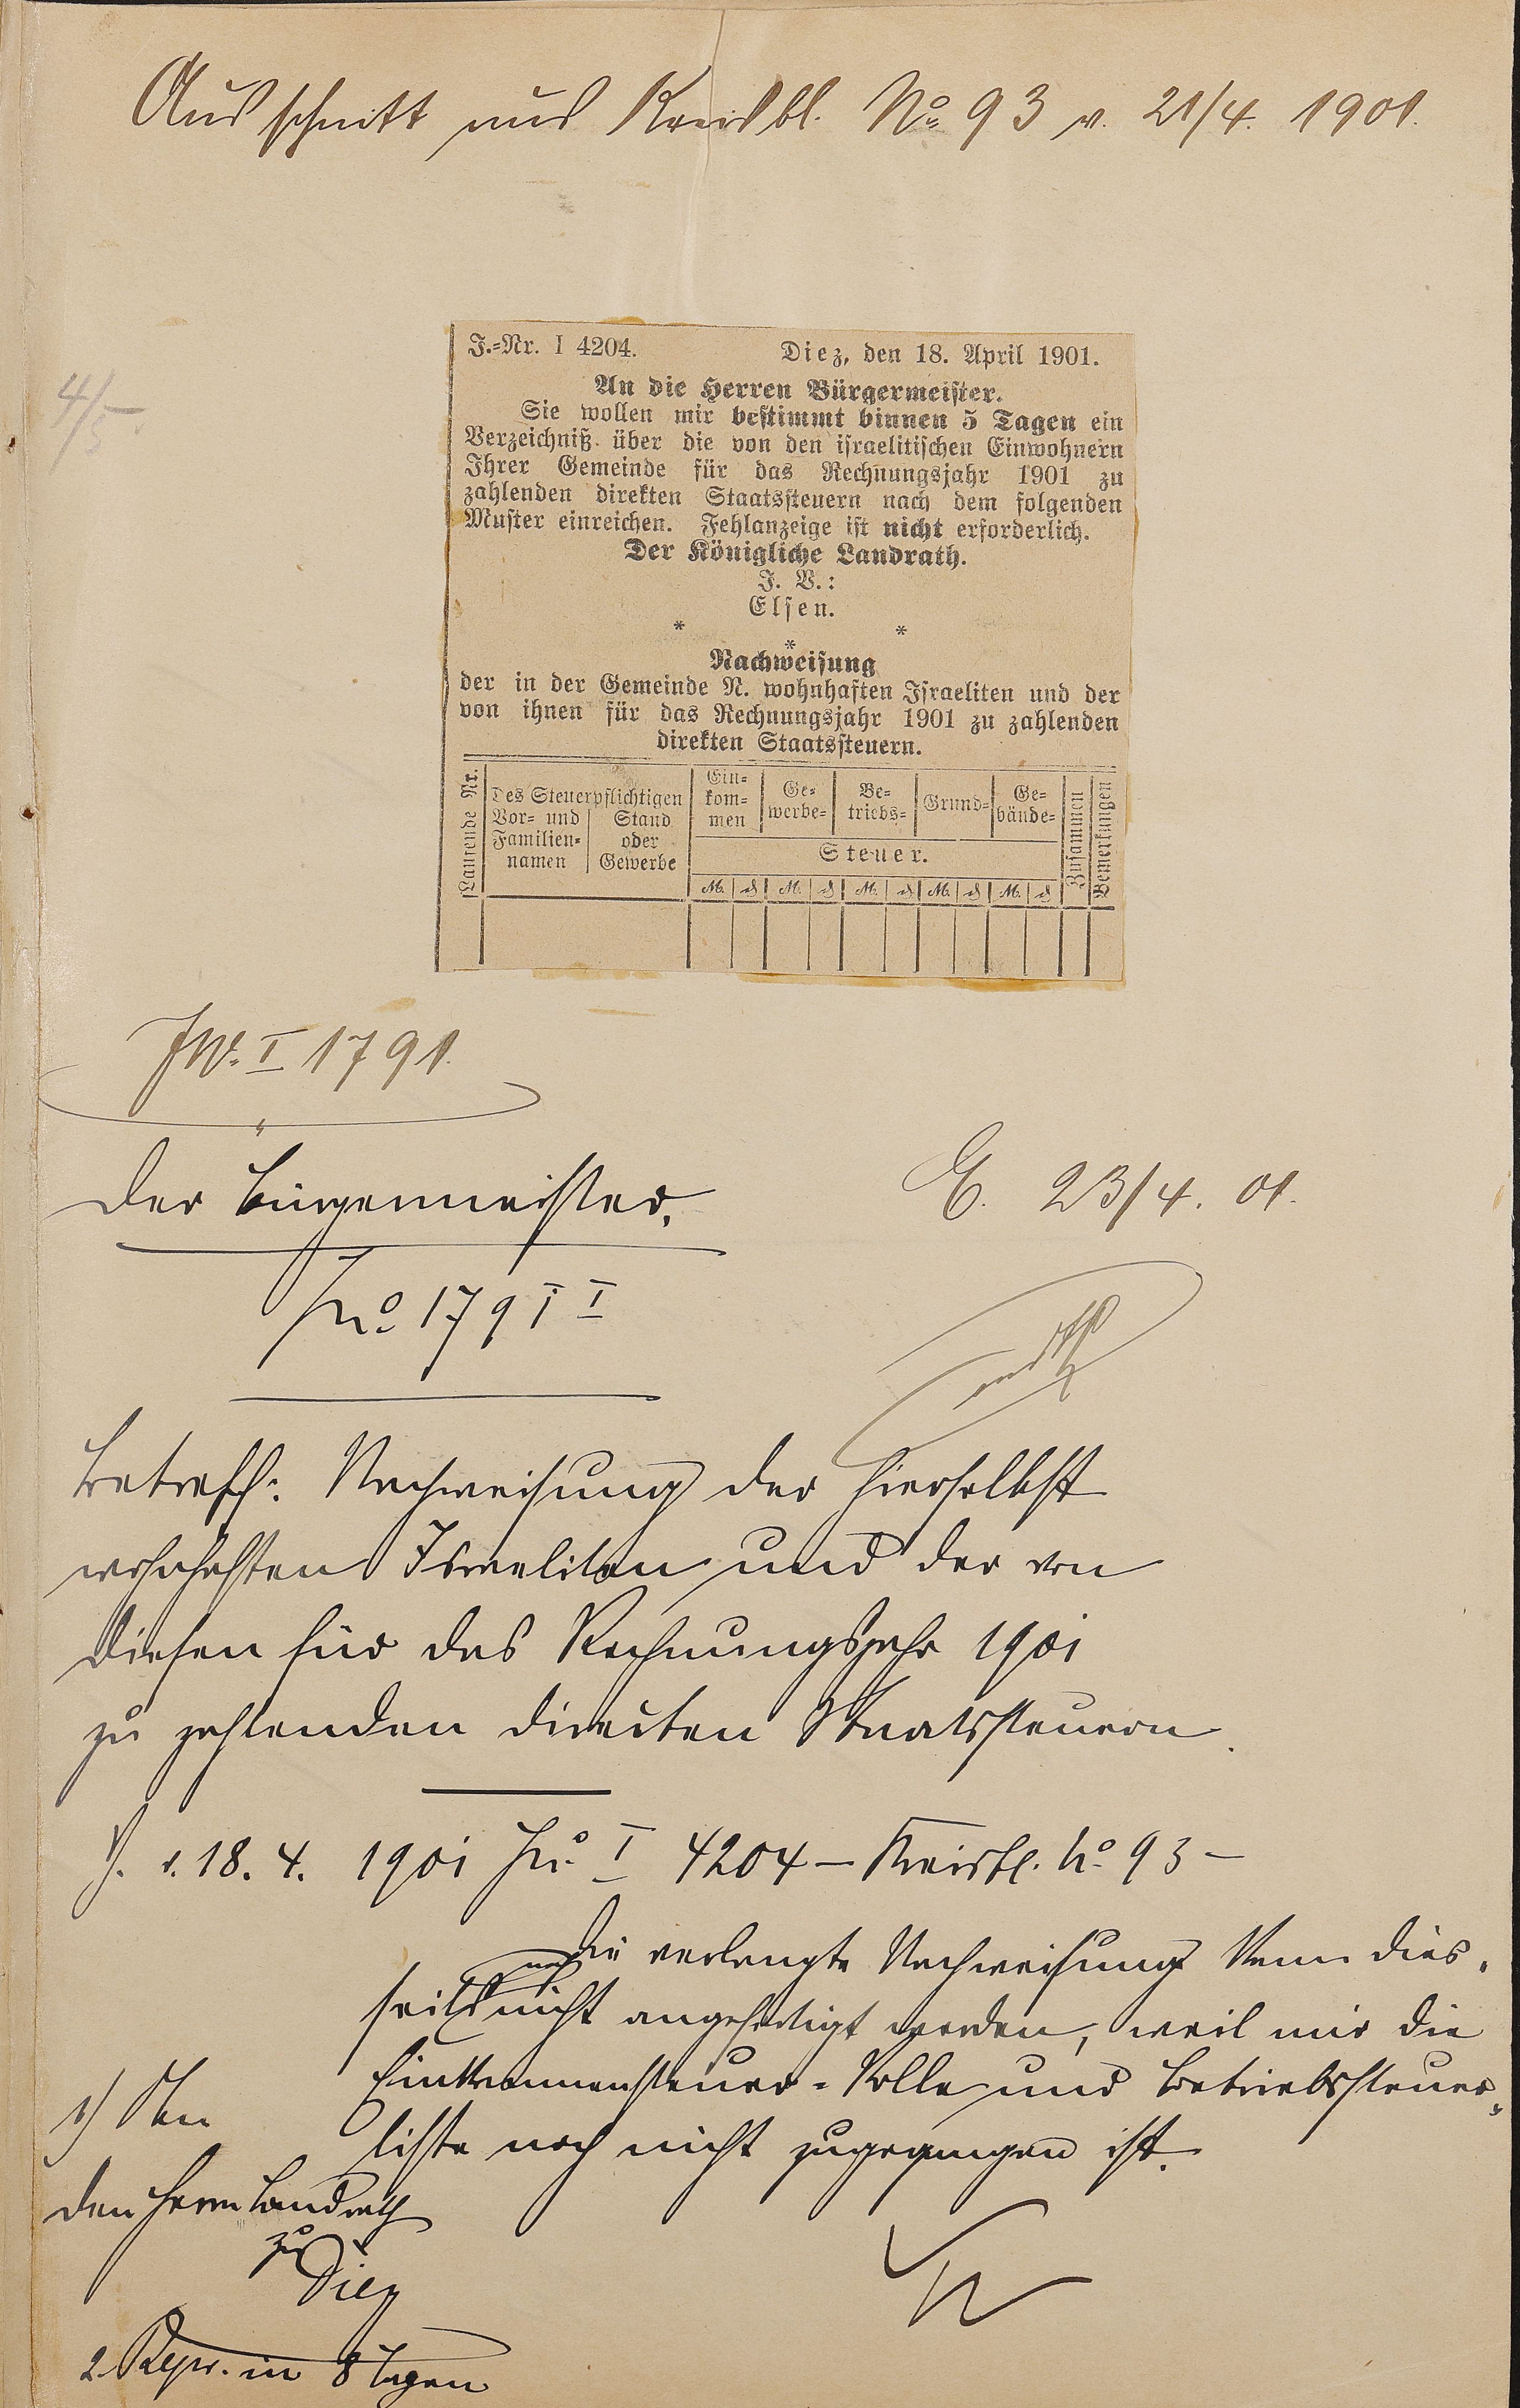 Ausschnitt aus Kreisbl. No 93 v. 21/4. 1901.
4/5.
J.=Nr. I 4204. Diez, den 18. April 1901.
An die Herren Bürgermeister.
Sie wollen mir bestimmt binnen 5 Tagen ein
Verzeichniß über die von den israelitischen Einwohnern
Ihrer Gemeinde für das Rechnungsjahr 1901 zu
zahlenden direkten Staatssteuern nach dem folgenden
Muster einreichen. Fehlanzeige ist nicht erforderlich.
Der Königliche Landrath.
J. V.:
Elsen.
* * *
Nachweisung
der in der Gemeinde N. wohnhaften Israeliten und der
von ihnen für das Rechnungsjahr 1901 zu zahlenden
direkten Staatssteuern.
Laufende Nr.
Des Steuerpflichtigen
Vor- und Familien-namen
Stand oder Gewerbe
Ein-kom-men
Ge-werbe-
Be-triebs-
Grund-
Ge-bäude-
Steuer.
Zusammen
Bemerkungen
M. ₰ M. ₰ M. ₰ M. ₰ M. ₰
JNo. I 1791.
Der Bürgermeister.
E. 23/4. 01.
JNo. 1791 I
Betreff: Nachweisung der hierselbst
wohnhaften Israeliten und der von
diesen für das Rechnungsjahr 1901
zu zahlenden directen Staatssteuern.
V. v. 18. 4. 1901 JNo. I 4204 – Kreisbl. No. 93 –
Die verlangte Nachweisung kann dies-
seits noch nicht angefertigt werden, weil mir die
Einkommensteuer-Rolle und Betriebssteuer-
liste noch nicht zugegangen ist.
1) An
den Herrn Landrath
zu
Diez
2. Repr. in 8 Tagen